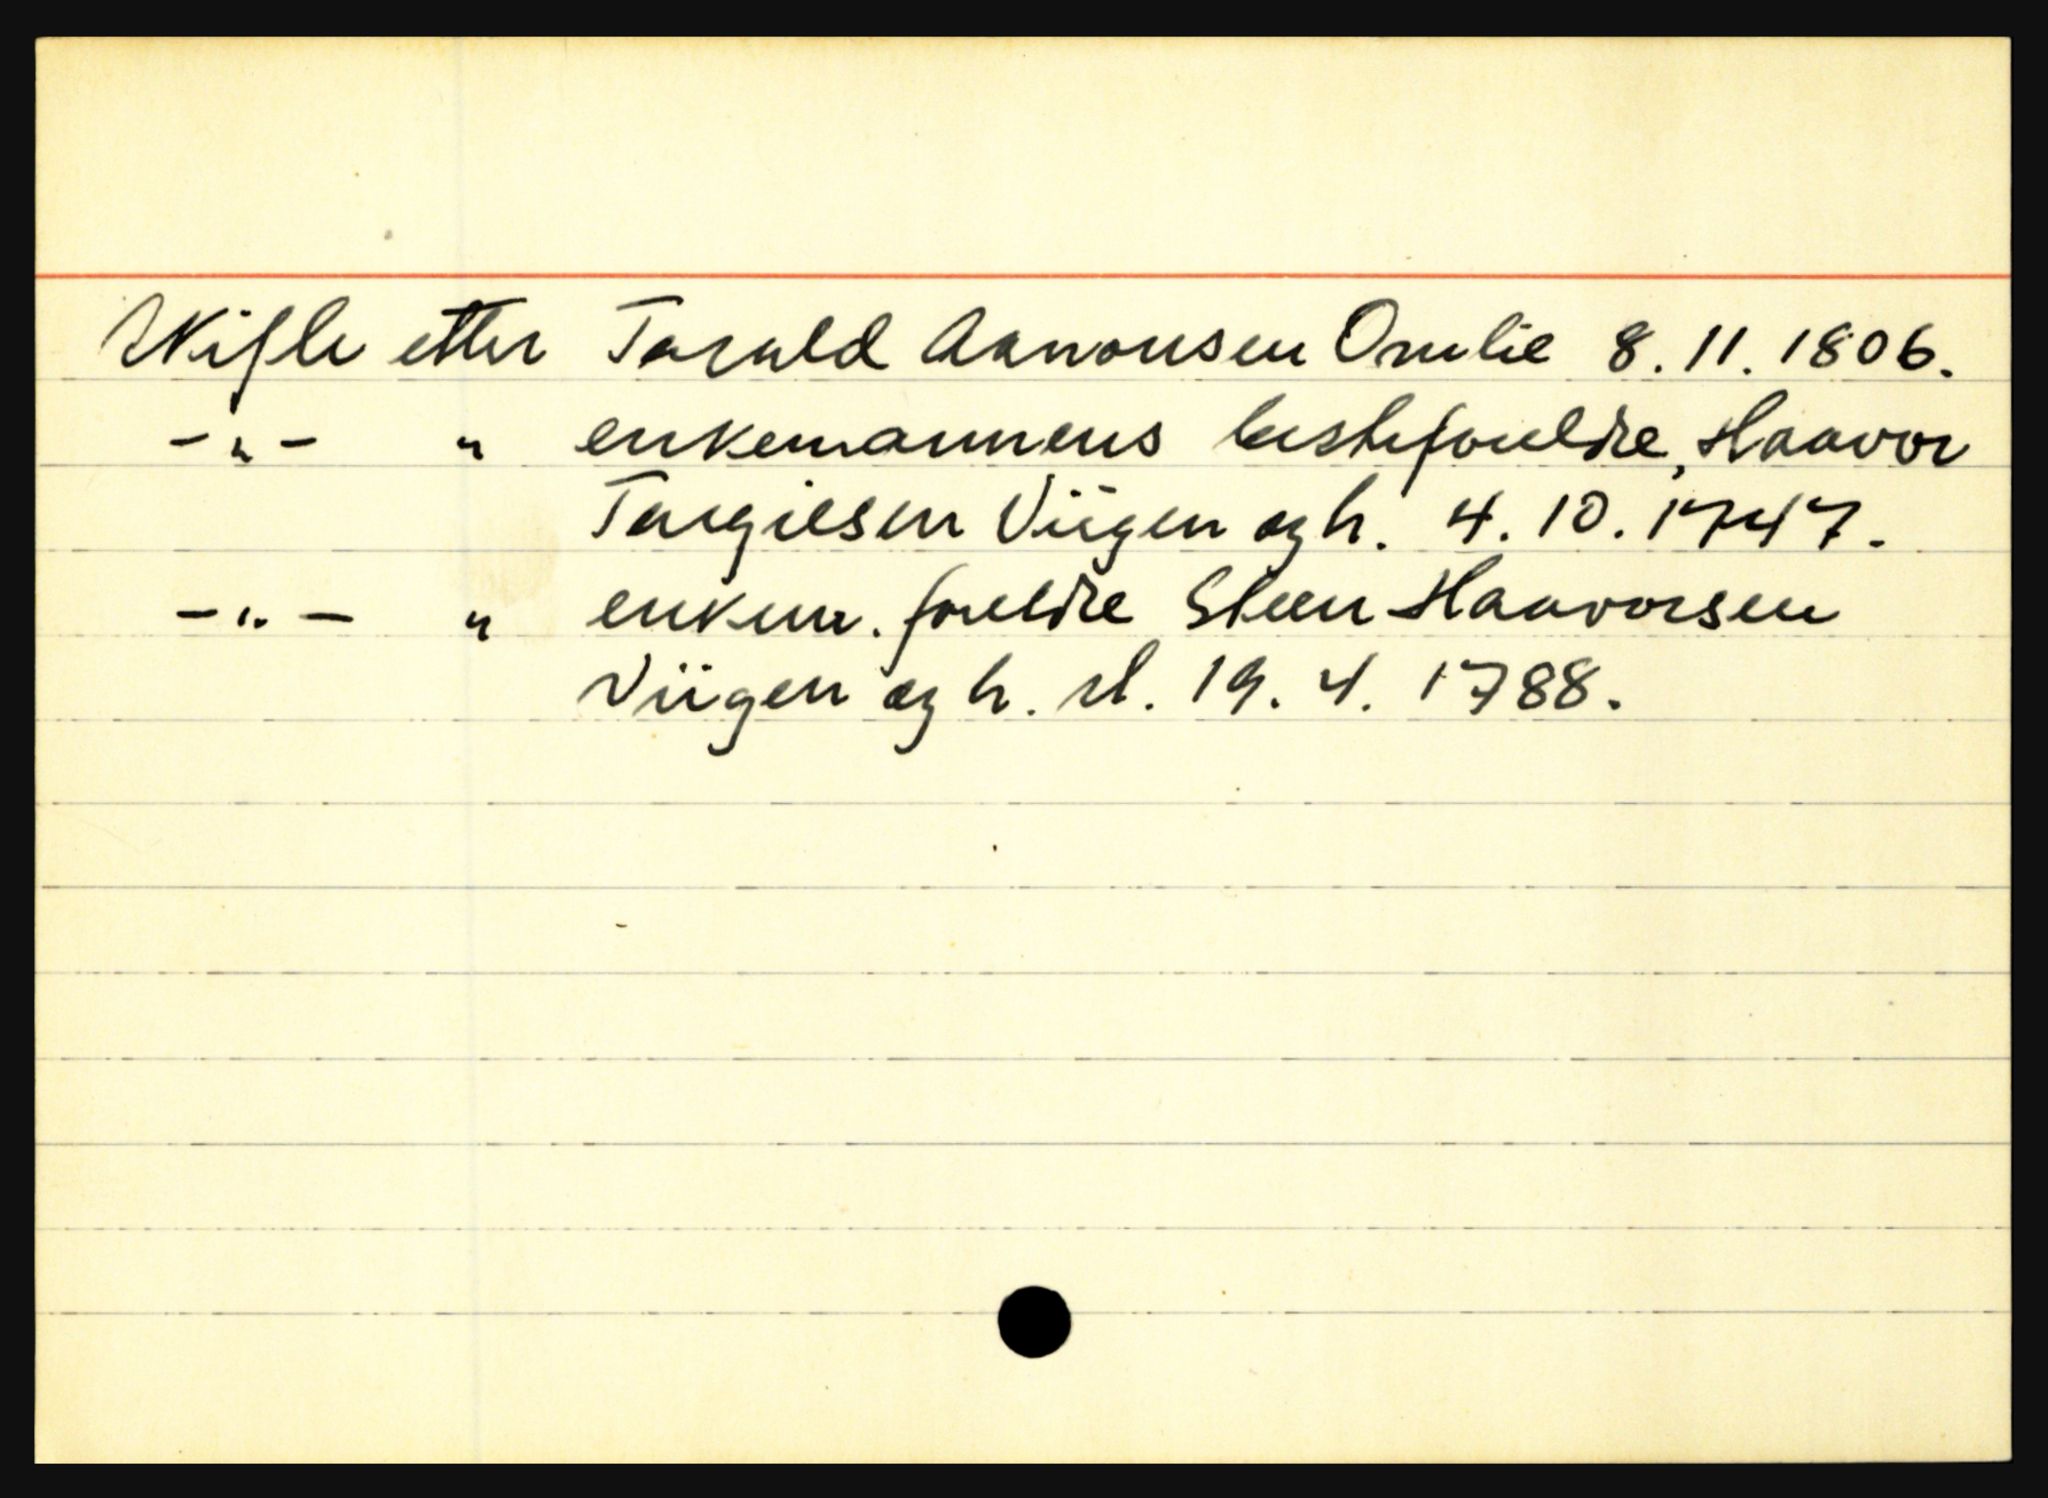 Skifte etter Tarald Aanonsen Omlie 8.11.1806.
-"- " enkemannens besteforeldre, Haavor
Targiesen Viigen og h. 4.10.1747.
-"- " enkem. foreldre Steen Haavorsen
Viigen og h. sl. 19.4.1788.